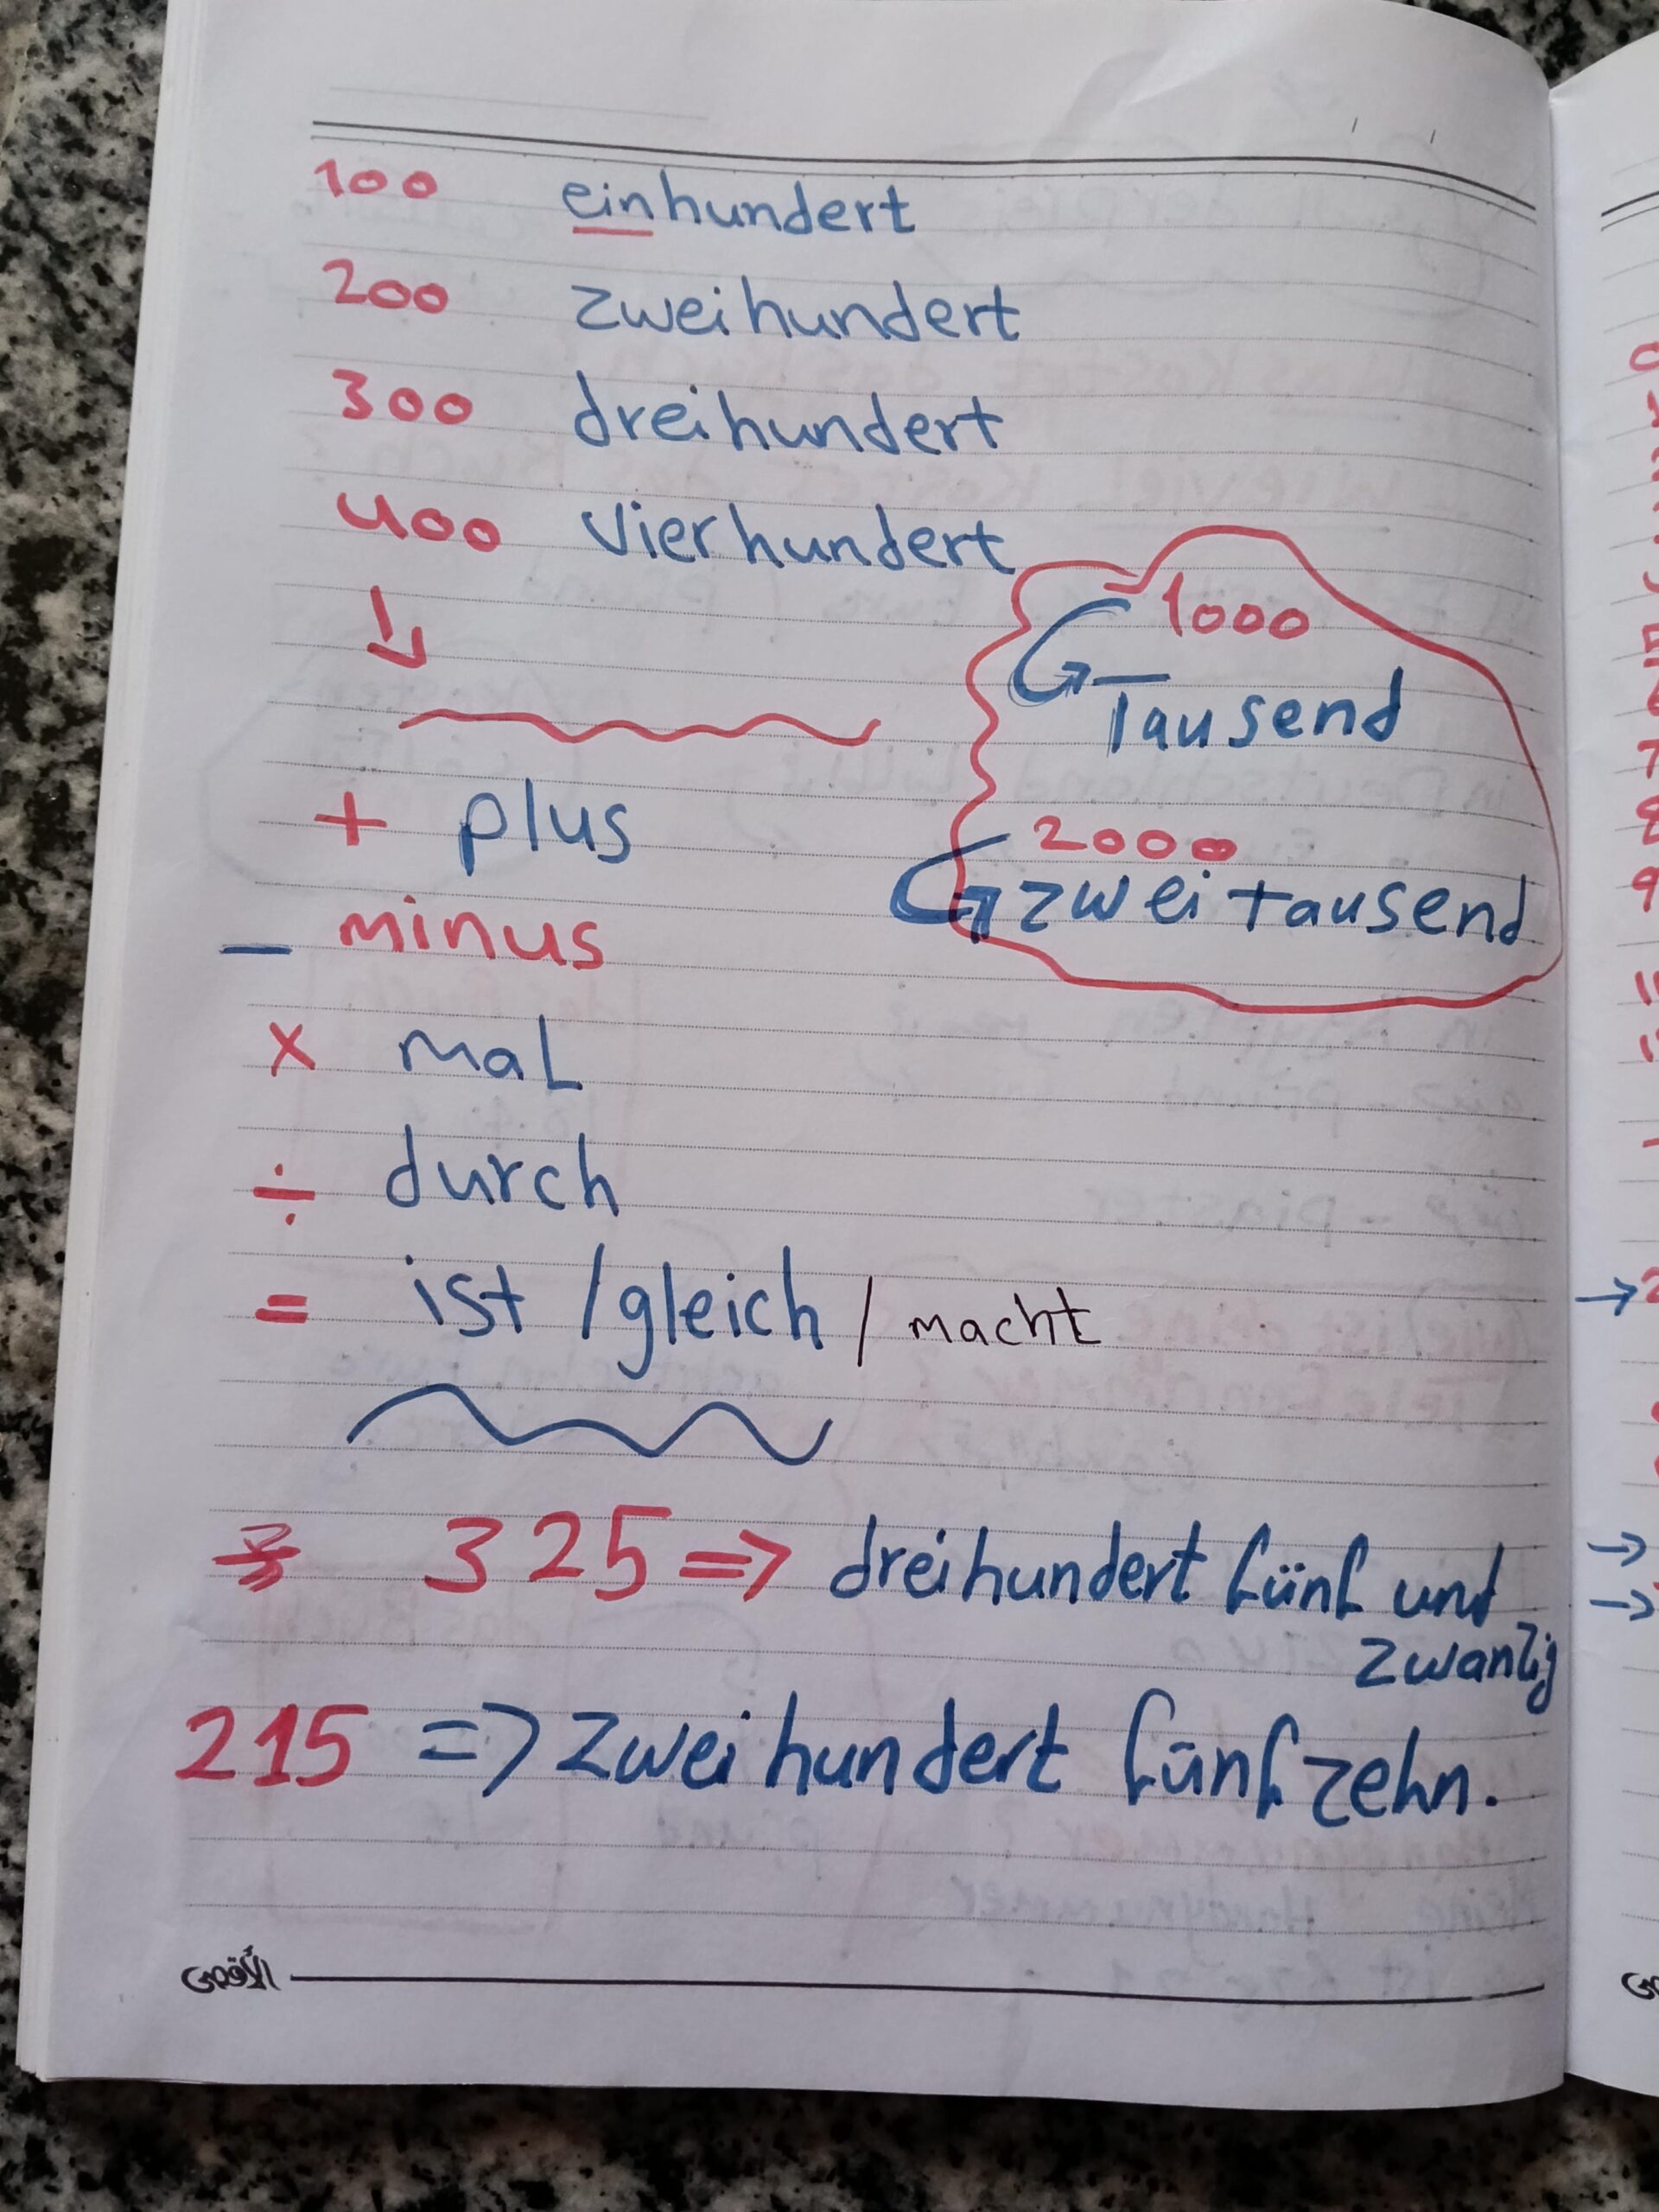 100 einhundert
200 zweihundert
300 dreihundert
400 vierhundert
1000
Tausend
2000
zweitausend
+ plus
- minus
x mal
÷ durch
= ist / gleich / macht
325 => dreihundert fünf und
zwanzig
215 => zweihundert fünfzehn.
الأقصى
0
7
8
9
→ 2
→
→